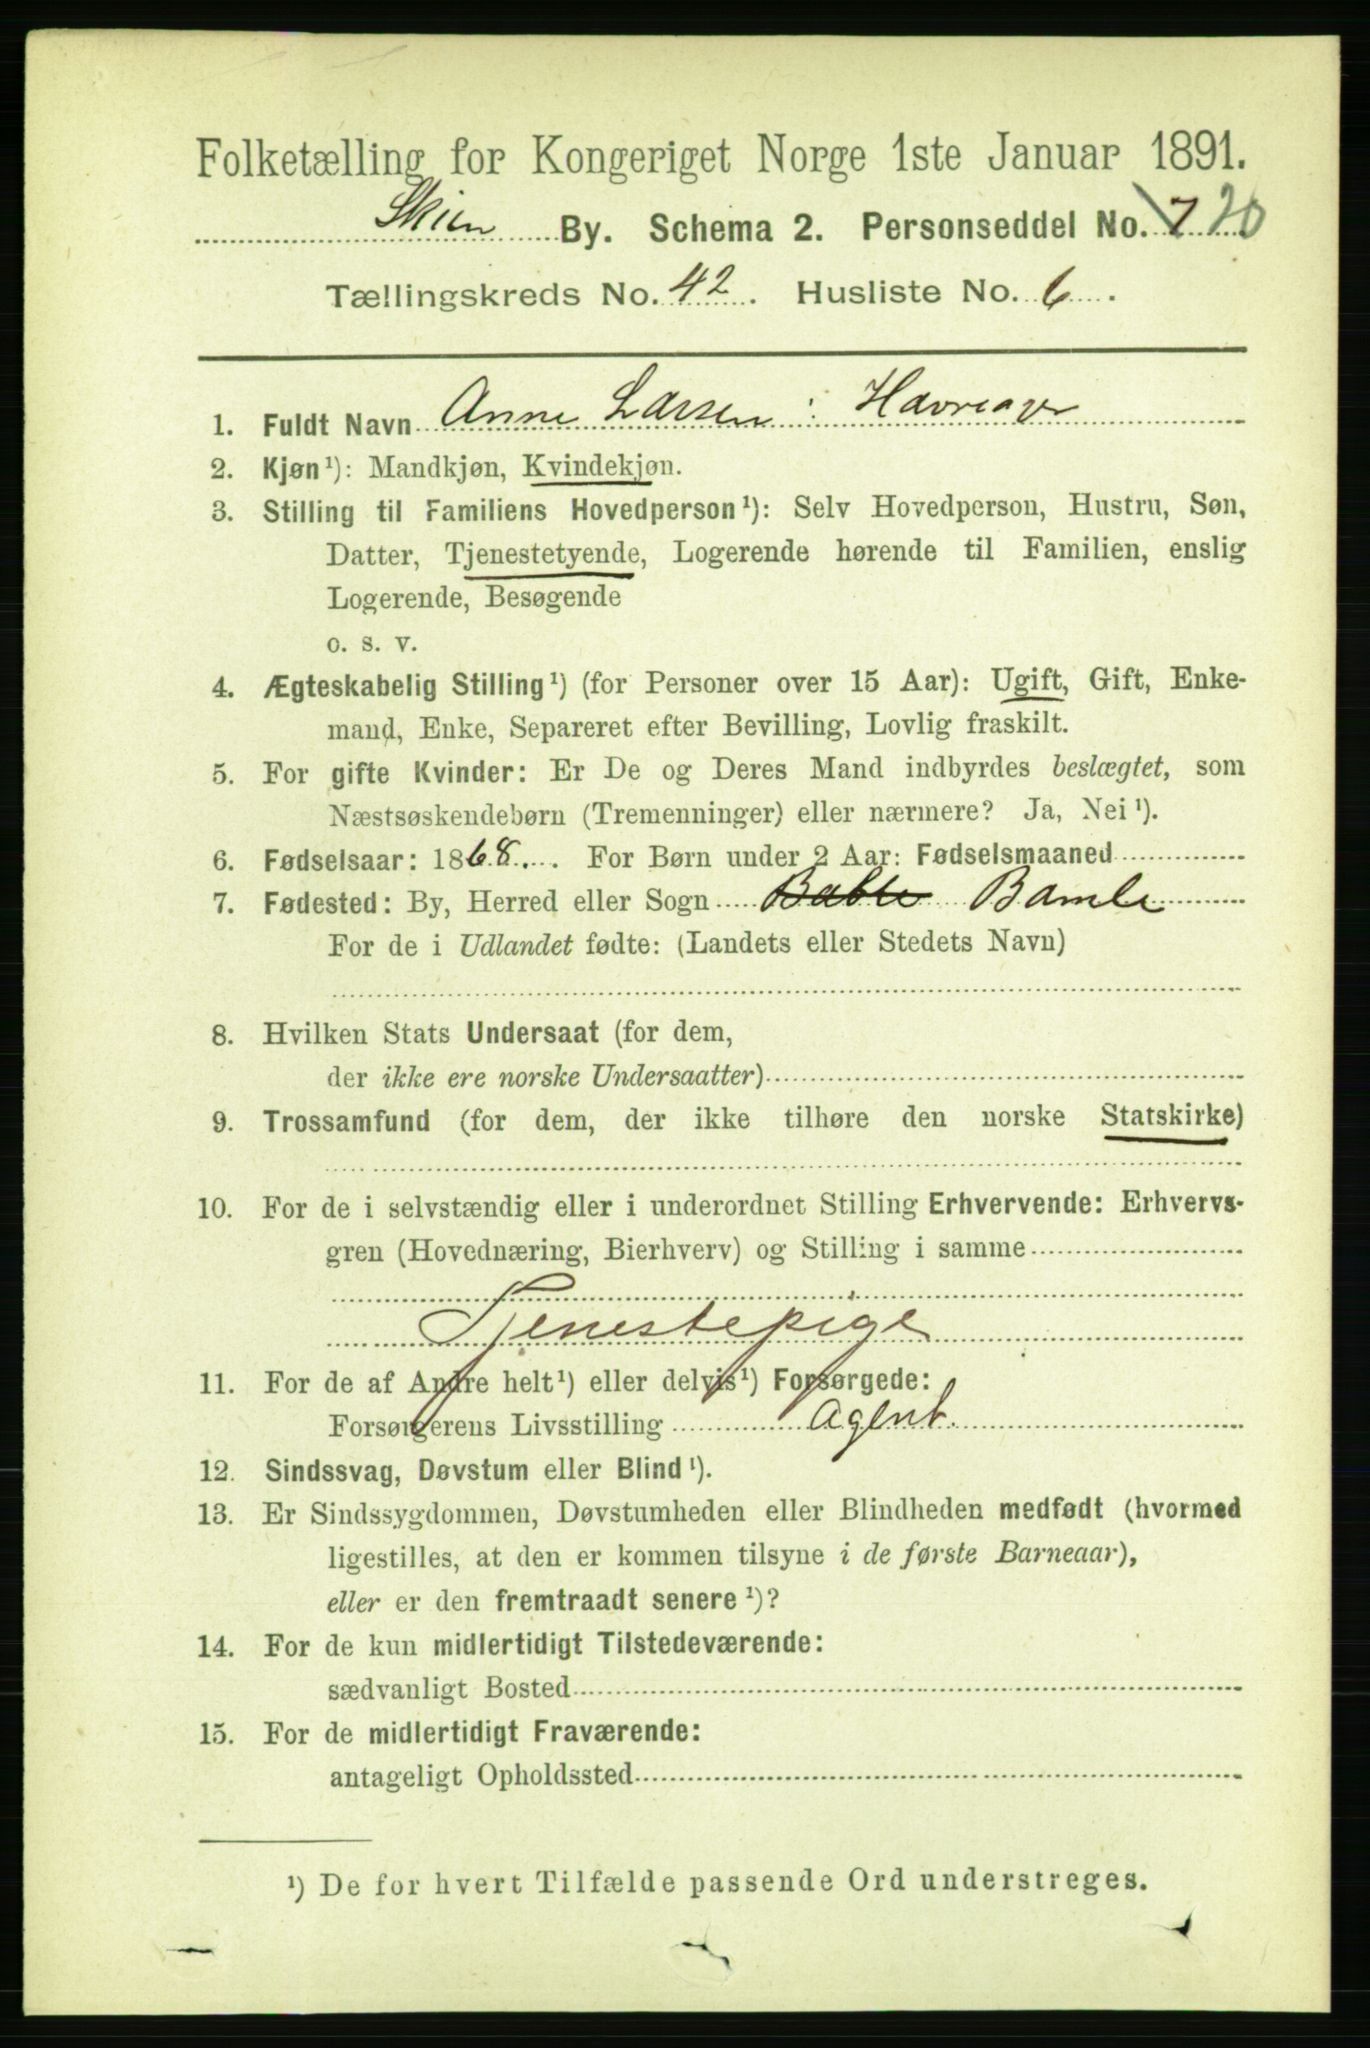 Folketælling for Kongeriget Norge 1ste Januar 1891.
Skien By. Schema 2. Personseddel No. 7 20
Tællingskreds No. 42. Husliste No. 6.
1. Fuldt Navn Anne Larsen : Havreager
2. Kjøn¹): Mandkjøn, Kvindekjøn.
3. Stilling til Familiens Hovedperson¹): Selv Hovedperson, Hustru, Søn,
Datter, Tjenestetyende, Logerende hørende til Familien, enslig
Logerende, Besøgende
o. s. v.
4. Ægteskabelig Stilling¹) (for Personer over 15 Aar): Ugift, Gift, Enke-
mand, Enke, Separeret efter Bevilling, Lovlig fraskilt.
5. For gifte Kvinder: Er De og Deres Mand indbyrdes beslægtet, som
Næstsøskendebørn (Tremenninger) eller nærmere? Ja, Nei¹).
6. Fødselsaar: 1868. For Børn under 2 Aar: Fødselsmaaned
7. Fødested: By, Herred eller Sogn Bable Bamle
For de i Udlandet fødte: (Landets eller Stedets Navn)
8. Hvilken Stats Undersaat (for dem,
der ikke ere norske Undersaatter)
9. Trossamfund (for dem, der ikke tilhøre den norske Statskirke)
10. For de i selvstændig eller i underordnet Stilling Erhvervende: Erhvervs-
gren (Hovednæring, Bierhverv) og Stilling i samme
Tjenestepige
11. For de af Andre helt¹) eller delvis¹) Forsørgede:
Forsørgerens Livsstilling Agent.
12. Sindssvag, Døvstum eller Blind¹).
13. Er Sindssygdommen, Døvstumheden eller Blindheden medfødt (hvormed
ligestilles, at den er kommen tilsyne i de første Barneaar),
eller er den fremtraadt senere¹)?
14. For de kun midlertidigt Tilstedeværende:
sædvanligt Bosted
15. For de midlertidigt Fraværende:
antageligt Opholdssted
¹) De for hvert Tilfælde passende Ord understreges.